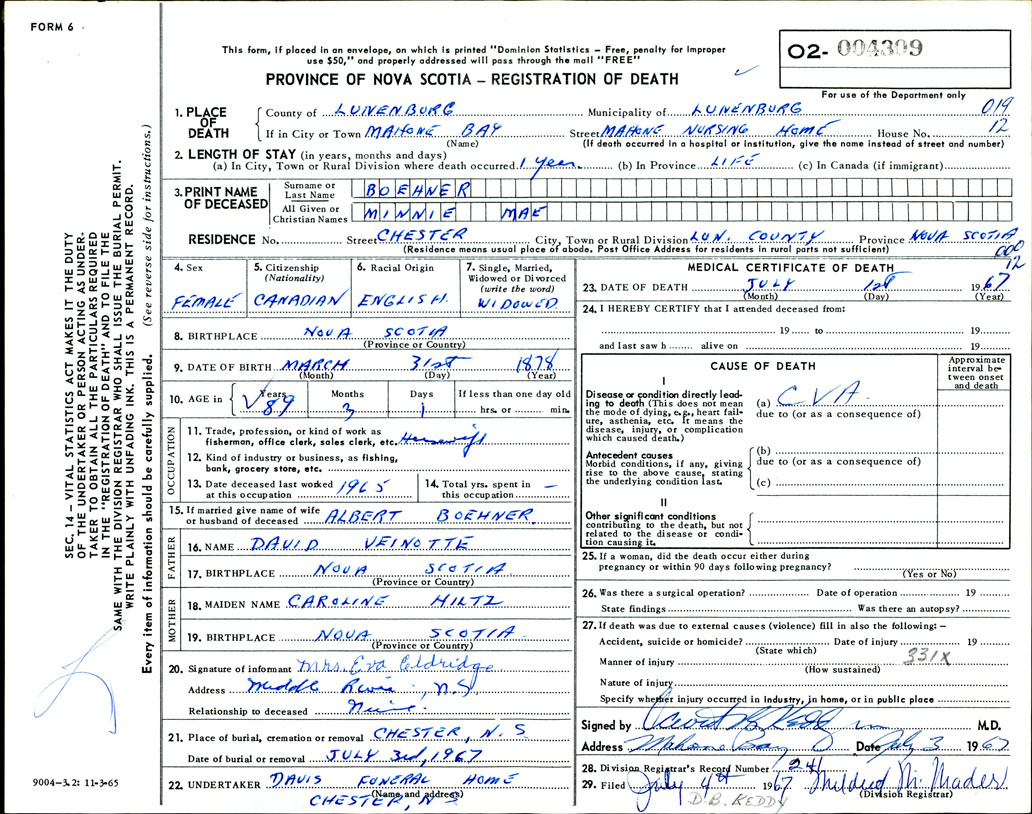 FORM 6
This form, if placed in an envelope, on which is printed "Dominion Statistics – Free, penalty for improper
use $50," and properly addressed will pass through the mail "FREE"
O2- 004309
PROVINCE OF NOVA SCOTIA – REGISTRATION OF DEATH
For use of the Department only
1. PLACE OF DEATH County of LUNENBURG Municipality of LUNENBURG 019
If in City or Town MAHONE BAY Street MAHONE NURSING HOME House No. 12
(Name) (If death occurred in a hospital or institution, give the name instead of street and number)
2. LENGTH OF STAY (in years, months and days)
(a) In City, Town or Rural Division where death occurred 1 Year (b) In Province LIFE (c) In Canada (if immigrant)
3. PRINT NAME OF DECEASED Surname or Last Name BOEHNER
All Given or Christian Names MINNIE MAE
RESIDENCE No. Street CHESTER City, Town or Rural Division LUN. COUNTY Province NOVA SCOTIA
(Residence means usual place of abode. Post Office Address for residents in rural parts not sufficient) 000
12
4. Sex 5. Citizenship (Nationality) 6. Racial Origin 7. Single, Married, Widowed or Divorced (write the word)
FEMALE CANADIAN ENGLISH. WIDOWED
8. BIRTHPLACE NOVA SCOTIA
(Province or Country)
9. DATE OF BIRTH MARCH 31st 1878
(Month) (Day) (Year)
10. AGE in Years Months Days If less than one day old
89 3 1 hrs. or min.
OCCUPATION
11. Trade, profession, or kind of work as
fisherman, office clerk, sales clerk, etc. Housewife
12. Kind of industry or business, as fishing,
bank, grocery store, etc.
13. Date deceased last worked at this occupation 1965 14. Total yrs. spent in this occupation –
15. If married give name of wife or husband of deceased ALBERT BOEHNER
FATHER
16. NAME DAVID VEINOTTE
17. BIRTHPLACE NOVA SCOTIA
(Province or Country)
MOTHER
18. MAIDEN NAME CAROLINE HILTZ
19. BIRTHPLACE NOVA SCOTIA
(Province or Country)
20. Signature of informant Mrs. Eva Eldridge
Address Middle River, N.S.
Relationship to deceased Niece.
21. Place of burial, cremation or removal CHESTER, N.S.
Date of burial or removal JULY 3rd, 1967
22. UNDERTAKER DAVIS FUNERAL HOME
(Name and address)
CHESTER, N S
MEDICAL CERTIFICATE OF DEATH
23. DATE OF DEATH JULY 1st 1967
(Month) (Day) (Year)
24. I HEREBY CERTIFY that I attended deceased from:
19 to 19
and last saw h alive on 19
CAUSE OF DEATH
Approximate interval between onset and death
I
Disease or condition directly leading to death (This does not mean
the mode of dying, e.g., heart failure, asthenia, etc. It means the
disease, injury, or complication
which caused death.)
(a) CVA
due to (or as a consequence of)
Antecedent causes
Morbid conditions, if any, giving
rise to the above cause, stating
the underlying condition last.
(b)
due to (or as a consequence of)
(c)
II
Other significant conditions
contributing to the death, but not
related to the disease or condition causing it.
25. If a woman, did the death occur either during
pregnancy or within 90 days following pregnancy?
(Yes or No)
26. Was there a surgical operation? Date of operation 19
State findings Was there an autopsy?
27. If death was due to external causes (violence) fill in also the following: –
Accident, suicide or homicide? Date of injury 19
(State which)
Manner of injury 331X
(How sustained)
Nature of injury
Specify whether injury occurred in industry, in home, or in public place
Signed by Keddy M.D.
Address Mahone Bay Date July 3 1967
28. Division Registrar's Record Number 241
29. Filed July 4th 1967 Mildred M. Mader
(Division Registrar)
D.B. KEDDY
SEC. 14 – VITAL STATISTICS ACT MAKES IT THE DUTY
OF THE UNDERTAKER OR PERSON ACTING AS UNDERTAKER TO OBTAIN ALL THE PARTICULARS REQUIRED
IN THE "REGISTRATION OF DEATH" AND TO FILE THE
SAME WITH THE DIVISION REGISTRAR WHO SHALL ISSUE THE BURIAL PERMIT.
WRITE PLAINLY WITH UNFADING INK. THIS IS A PERMANENT RECORD.
Every item of information should be carefully supplied. (See reverse side for instructions.)
9004–3.2: 11-3-65